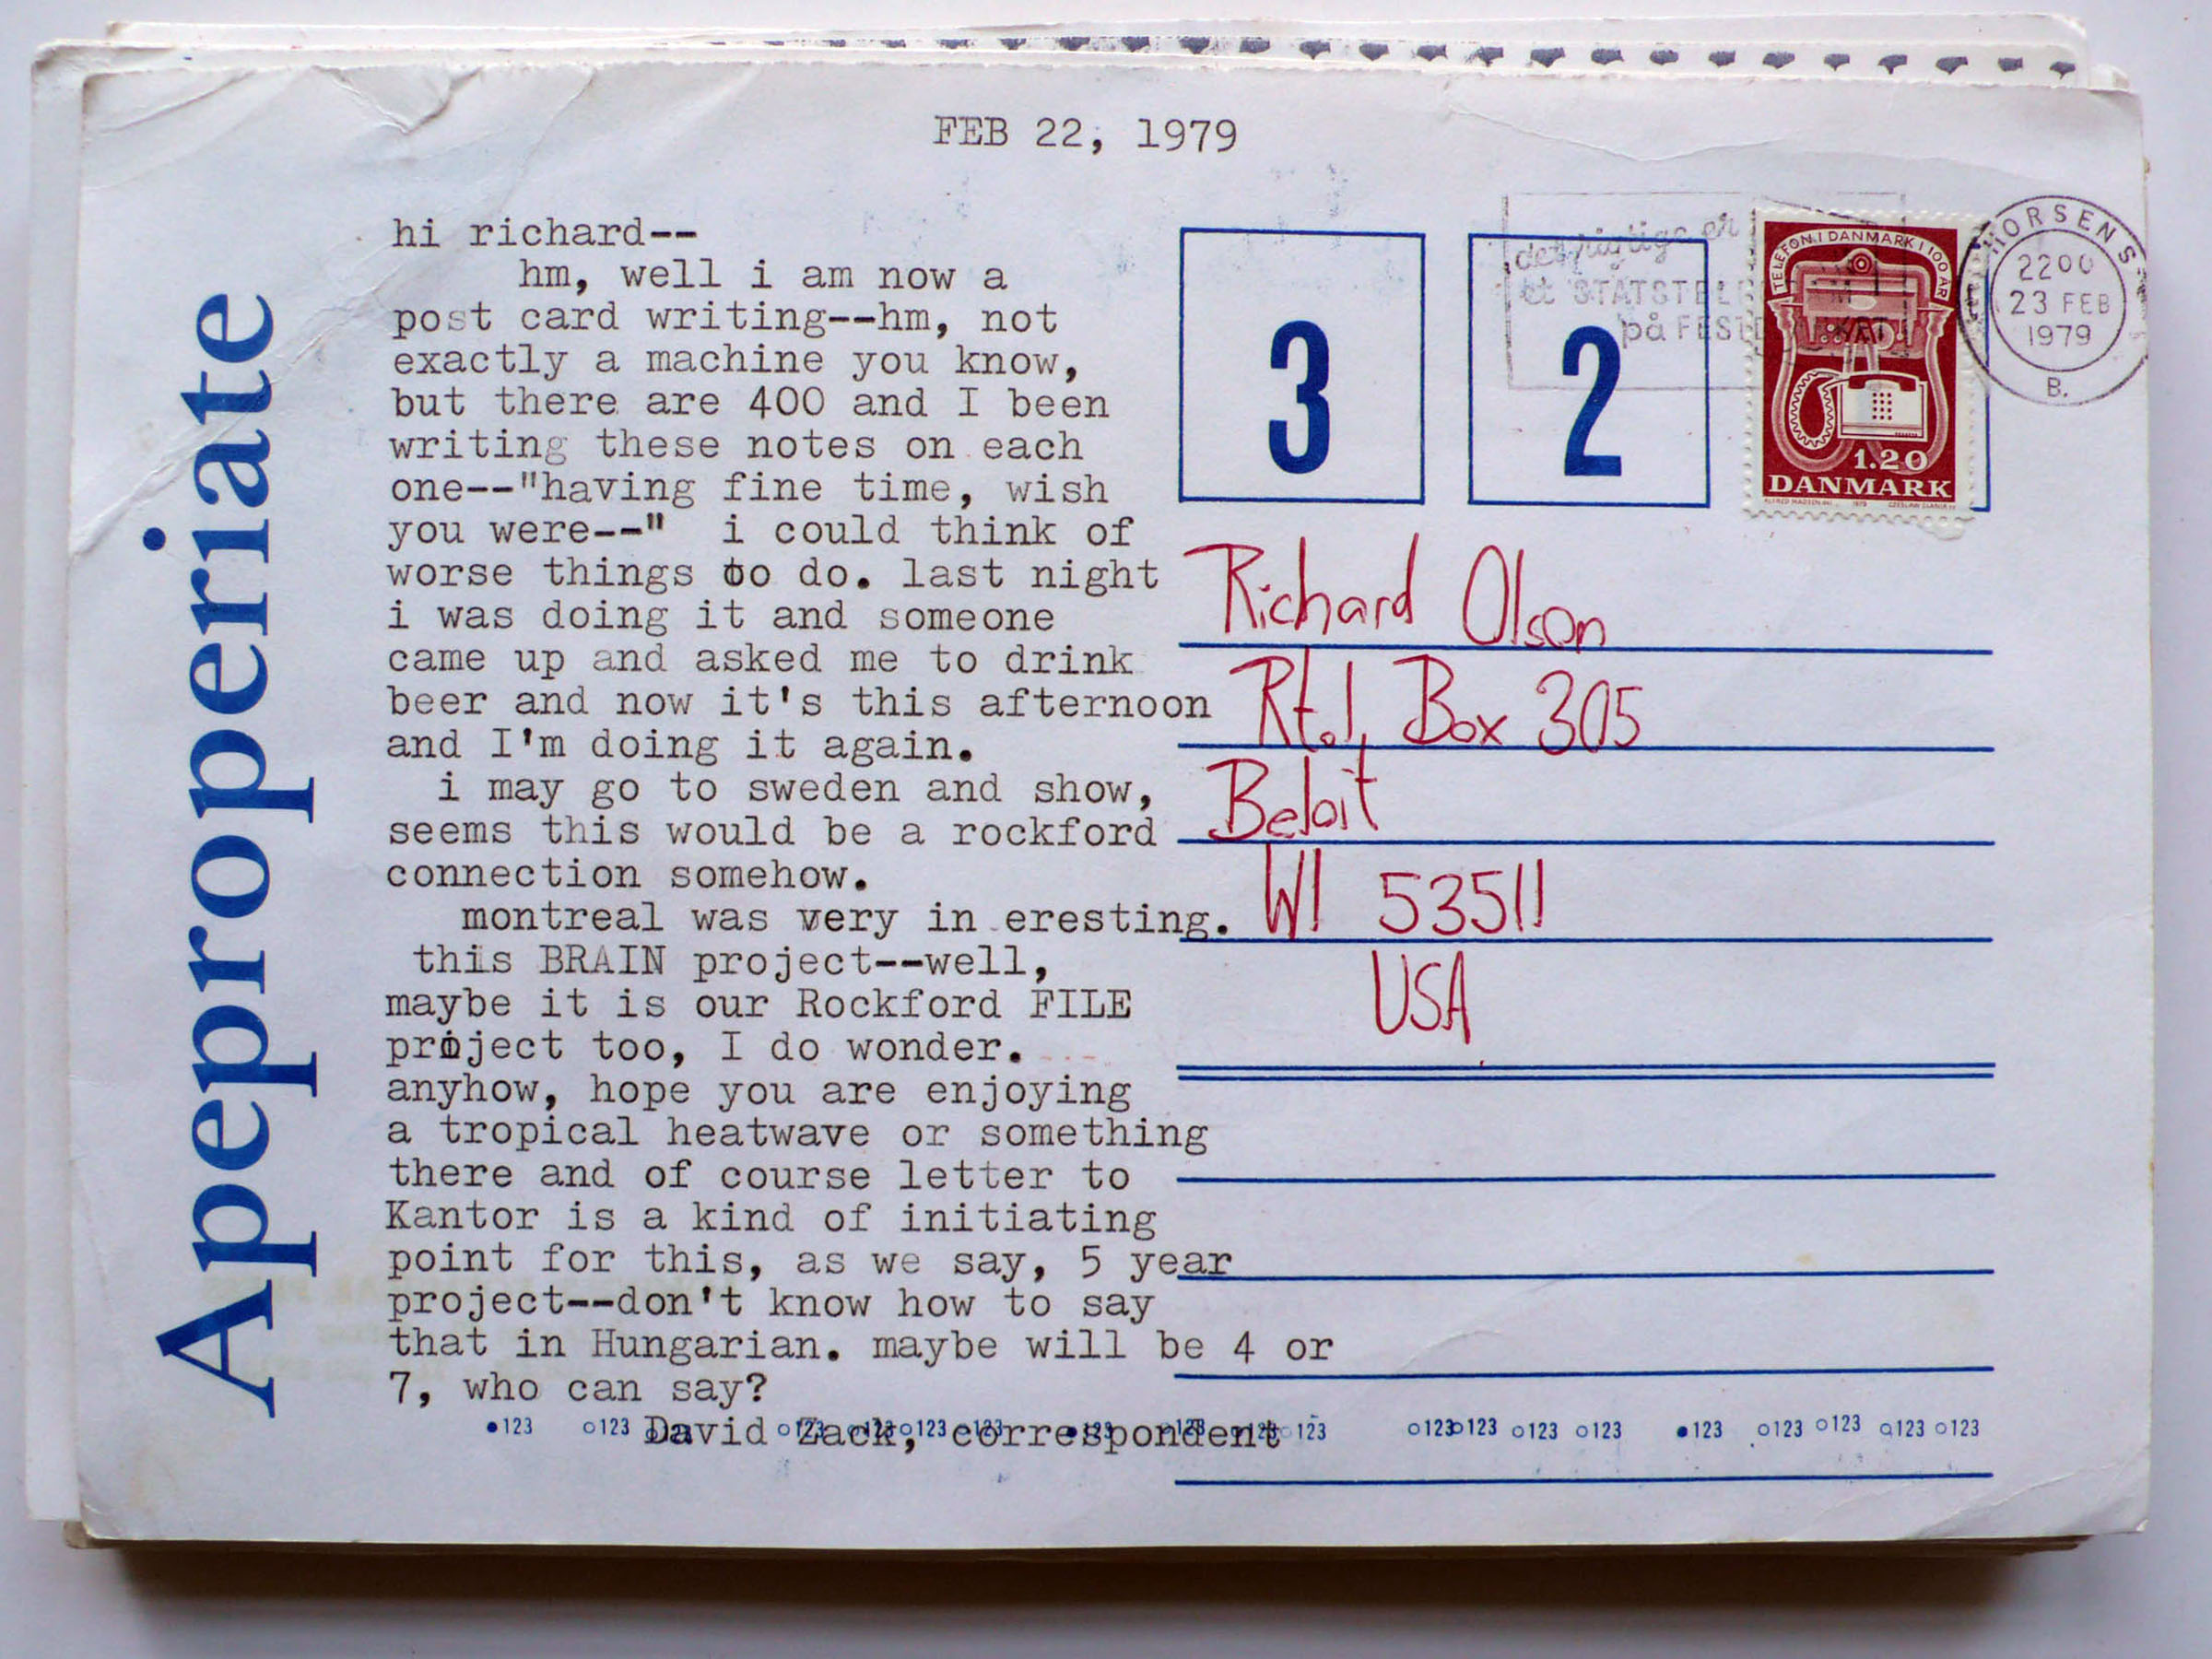 FEB 22, 1979
Apeproperiate
hi richard--
hm, well i am now a
post card writing--hm, not
exactly a machine you know,
but there are 400 and I been
writing these notes on each
one--"having fine time, wish
you were--" i could think of
worse things to do. last night
i was doing it and someone
came up and asked me to drink
beer and now it's this afternoon
and I'm doing it again.
i may go to sweden and show,
seems this would be a rockford
connection somehow.
montreal was very in eresting.
this BRAIN project--well,
maybe it is our Rockford FILE
project too, I do wonder.
anyhow, hope you are enjoying
a tropical heatwave or something
there and of course letter to
Kantor is a kind of initiating
point for this, as we say, 5 year
project--don't know how to say
that in Hungarian. maybe will be 4 or
7, who can say?
David Zack, correspondent
3 2
det rigtige er
et STATSTELE
på FEST
TELEFON I DANMARK I 100 ÅR
1.20
DANMARK
HORSENS
2200
23 FEB
1979
B.
Richard Olson
Rt.1, Box 305
Beloit
WI 53511
USA
123 123 123 123 123 123 123 123 123 123 123 123 123 123 123 123 123 123 123